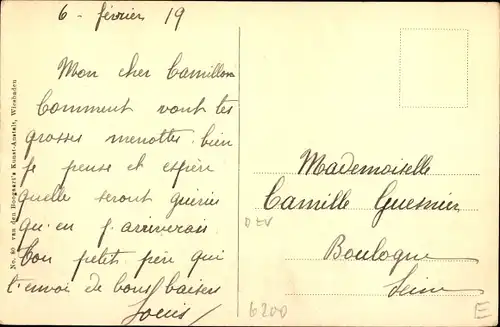 6 - février 19
Mon cher Camillon
Comment vont tes
grosses menottes bien
je pense et espère
quelle seront guerie
qu'en j'arriverais
Ton petit père qui
t'envoi de bons baisers
Louis
Mademoiselle
Camille Guesnier
Boulogne
Seine
No. 80 van den Hoogaart's Kunst-Anstalt, Wiesbaden
6200
E